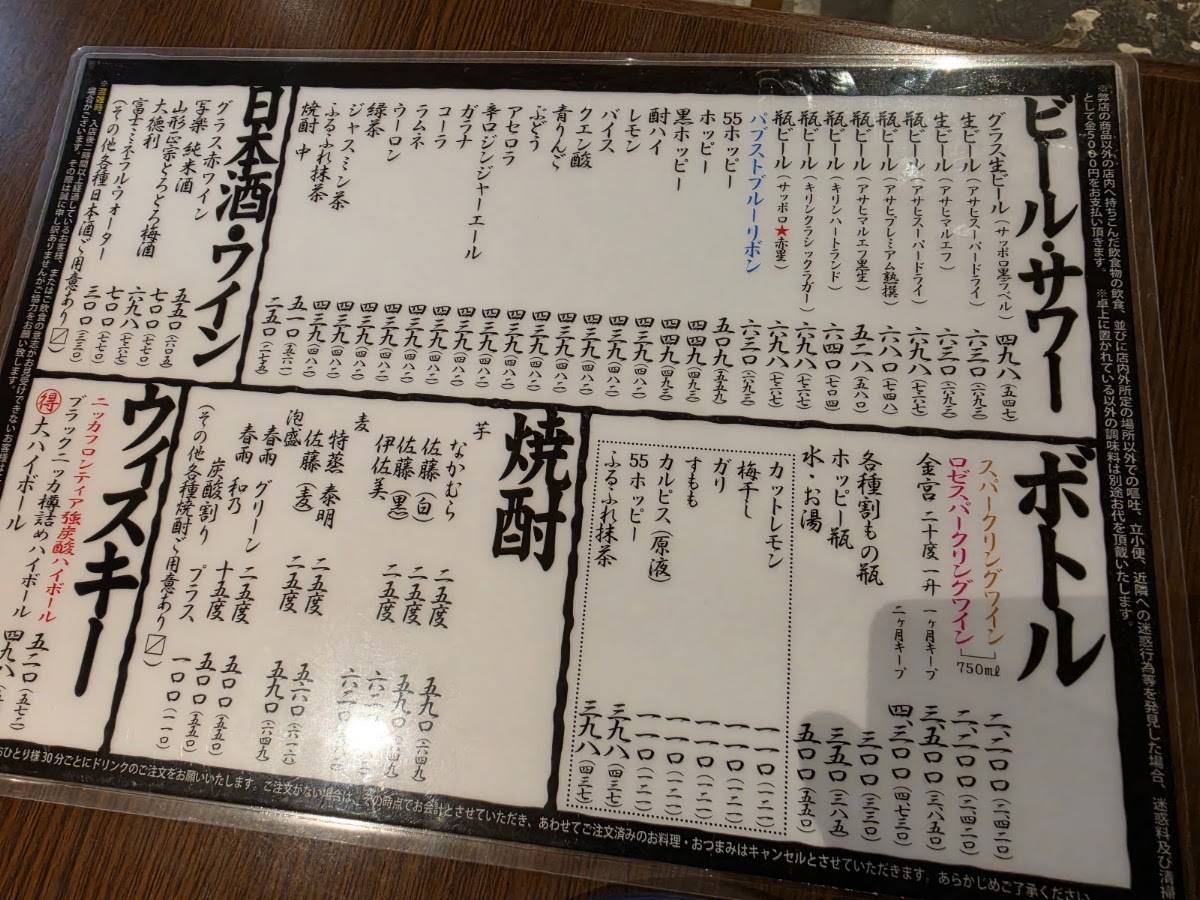 ※弊店の商品以外の店内へ持ちこんだ飲食物の飲食、並びに店内外所定の場所以外での嘔吐、立小便、近隣への迷惑行為等を発見した場合、迷惑料及び清掃
として金5000円をお支払い頂きます。 ※卓上に置かれている以外の調味料は別途お代を頂戴いたします。
ビール・サワー
グラス生ビール（サッポロ黒ラベル） 四九八（五四七）
生ビール（アサヒスーパードライ） 六三〇（六九三）
生ビール（アサヒマルエフ） 六三〇（六九三）
瓶ビール（アサヒスーパードライ） 六九八（七六七）
瓶ビール（アサヒプレミアム熟撰） 六八〇（七四八）
瓶ビール（アサヒマルエフ黒生） 五二八（五八〇）
瓶ビール（キリンハートランド） 六四〇（七〇四）
瓶ビール（キリンクラシックラガー） 六九八（七六七）
瓶ビール（サッポロ★赤星） 六九八（七六七）
パブストブルーリボン 六三〇（六九三）
55ホッピー 五〇九（五五九）
ホッピー 四四九（四九三）
黒ホッピー 四四九（四九三）
酎ハイ 四三九（四八二）
レモン 四三九（四八二）
バイス 四三九（四八二）
クエン酸 四三九（四八二）
青りんご 四三九（四八二）
ぶどう 四三九（四八二）
アセロラ 四三九（四八二）
辛口ジンジャーエール 四三九（四八二）
ガラナ 四三九（四八二）
コーラ 四三九（四八二）
ラムネ 四三九（四八二）
ウーロン 四三九（四八二）
緑茶 四三九（四八二）
ジャスミン茶 四三九（四八二）
ふるふれ抹茶 五一〇（五六一）
焼酎 中 二五〇（二七五）
日本酒・ワイン
グラス赤ワイン 五五〇（六〇五）
写楽 純米酒 七〇〇（七七〇）
山形正宗とろとろ梅酒 六九八（七六七）
大徳利 七〇〇（七七〇）
富士ミネラルウォーター 三〇〇（三三〇）
（その他各種日本酒ご用意あり〼）
ボトル
スパークリングワイン 二、二〇〇（二、四二〇）
ロゼスパークリングワイン 二、二〇〇（二、四二〇）
750mℓ
金宮 二十度一升 一ヶ月キープ 三、五〇〇（三、八五〇）
二ヶ月キープ 四、三〇〇（四、七三〇）
各種割もの瓶 三〇〇（三三〇）
ホッピー瓶 三五〇（三八五）
水・お湯 五〇〇（五五〇）
カットレモン 一一〇（一二一）
梅干し 一一〇（一二一）
ガリ 一一〇（一二一）
すもも 一一〇（一二一）
カルピス（原液） 一一〇（一二一）
55ホッピー 三九八（四三七）
ふるふれ抹茶 三九八（四三七）
焼酎
芋
なかむら 二五度 五九〇（六四九）
佐藤（白） 二五度 五九〇（六四九）
佐藤（黒） 二五度
伊佐美 二五度
麦
特蒸 泰明 二五度
佐藤（麦） 二五度 五六〇（六一六）
泡盛
春雨 グリーン 二五度 五九〇（六四九）
春雨 和乃 十五度 五〇〇（五五〇）
炭酸割り プラス 一〇〇（一一〇）
（その他各種焼酎ご用意あり〼）
ウィスキー
ニッカフロンティア強炭酸ハイボール 五二〇（五七二）
ブラックニッカ樽詰めハイボール 四九八
得 大ハイボール
※混雑時、入店後二時間以上経過しているお客様、またはご飲食の意志がお見受けできないお客様は
場合がございます。その際は誠に申し訳ありませんがご協力をお願い致します。
おひとり様30分ごとにドリンクのご注文をお願いいたします。ご注文がない場合は、その時点でお会計とさせていただき、あわせてご注文済みのお料理・おつまみはキャンセルとさせていただきます。あらかじめご了承ください